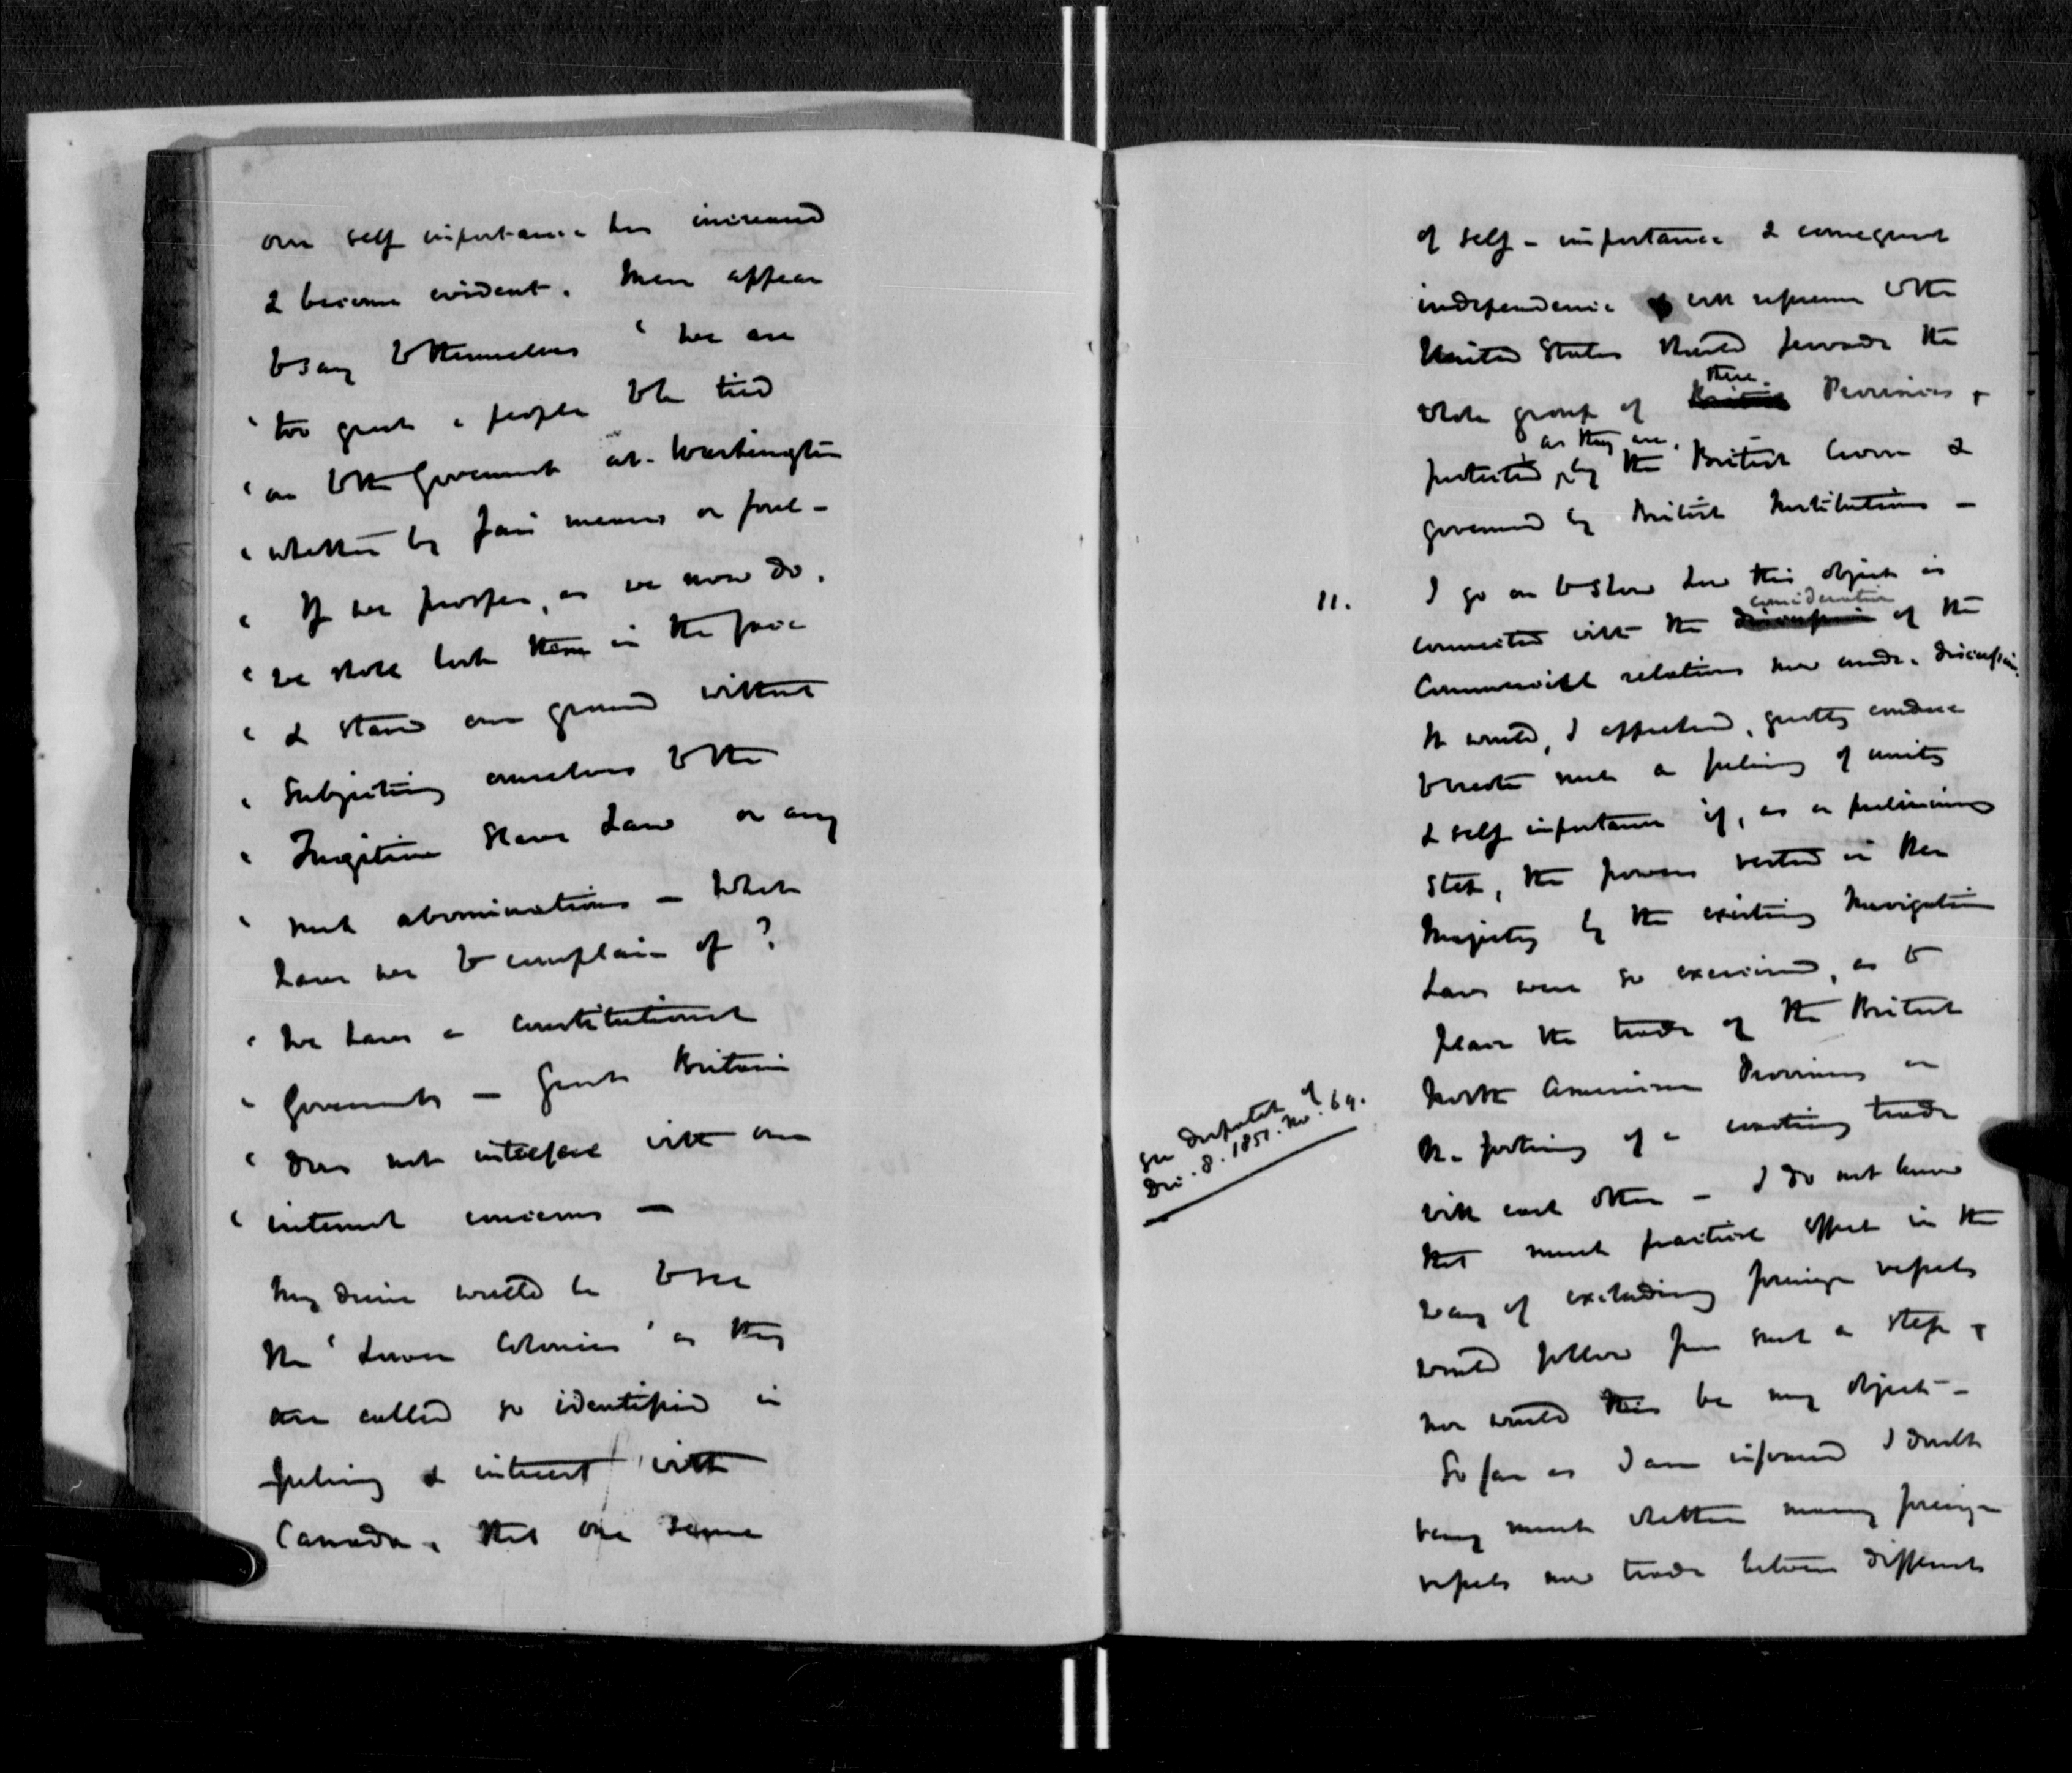 our self importance has increased
& become evident. Men appear
to say to themselves ' we are
' too great a people to be tied
' on to the Government at Washington
' whether by fair means or foul -
' If we prosper, as we now do,
' we shall look them in the face
' & stand our ground without
' subjecting ourselves to the
' Fugitive Slave Law or any
' such abominations - What
have we to complain of ?
' We have a constitutional
' Government - Great Britain
' does not interfere with our
' internal concerns -
My desire would be to see
the ' Lower Colonies ' as they
are called so identified in
feeling & interest with
Canada, that one sense
of self - importance & consequent
independence with respect to the
United States should pervade the
whole group of British these Provinces,
protected, as they are, by the British Crown &
governed by British Institutions -
11. I go on to show how this object is
connected with the discussion consideration of the
Commercial relations now under discussion.
It would, I apprehend, greatly conduce
to create such a feeling of unity
& self importance if, as a preliminary
step, the powers vested in Her
Majesty by the existing Navigation
Laws were so exercised, as to
place the trade of the British
North American Provinces on
the footing of a coasting trade
with each other - I do not know
See Despatch of
Dec. 8. 1851. No. 69.
that much practical effect in the
way of excluding foreign vessels
would follow from such a step,
nor would this be my object -
So far as I am informed I doubt
very much whether many foreign
vessels now trade between different